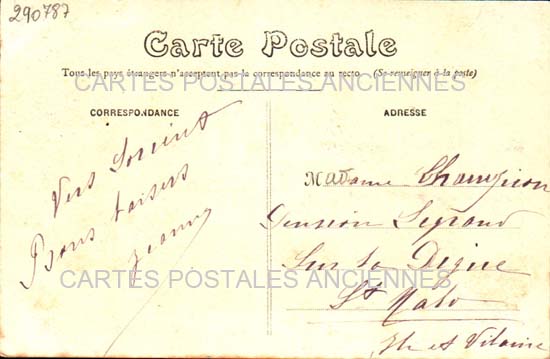 290787
Carte Postale
Tous les pays étrangers n'acceptent pas la correspondance au recto. (Se renseigner à la poste)
CARTES POSTALES ANCIENNES
CORRESPONDANCE
Vers Lorient
Bons baisers
Jeanne
ADRESSE
Madame Champion
Pension Legrand
Sur la Digue
St Malo
Ille et Vilaine
CARTES POSTALES ANCIENNES